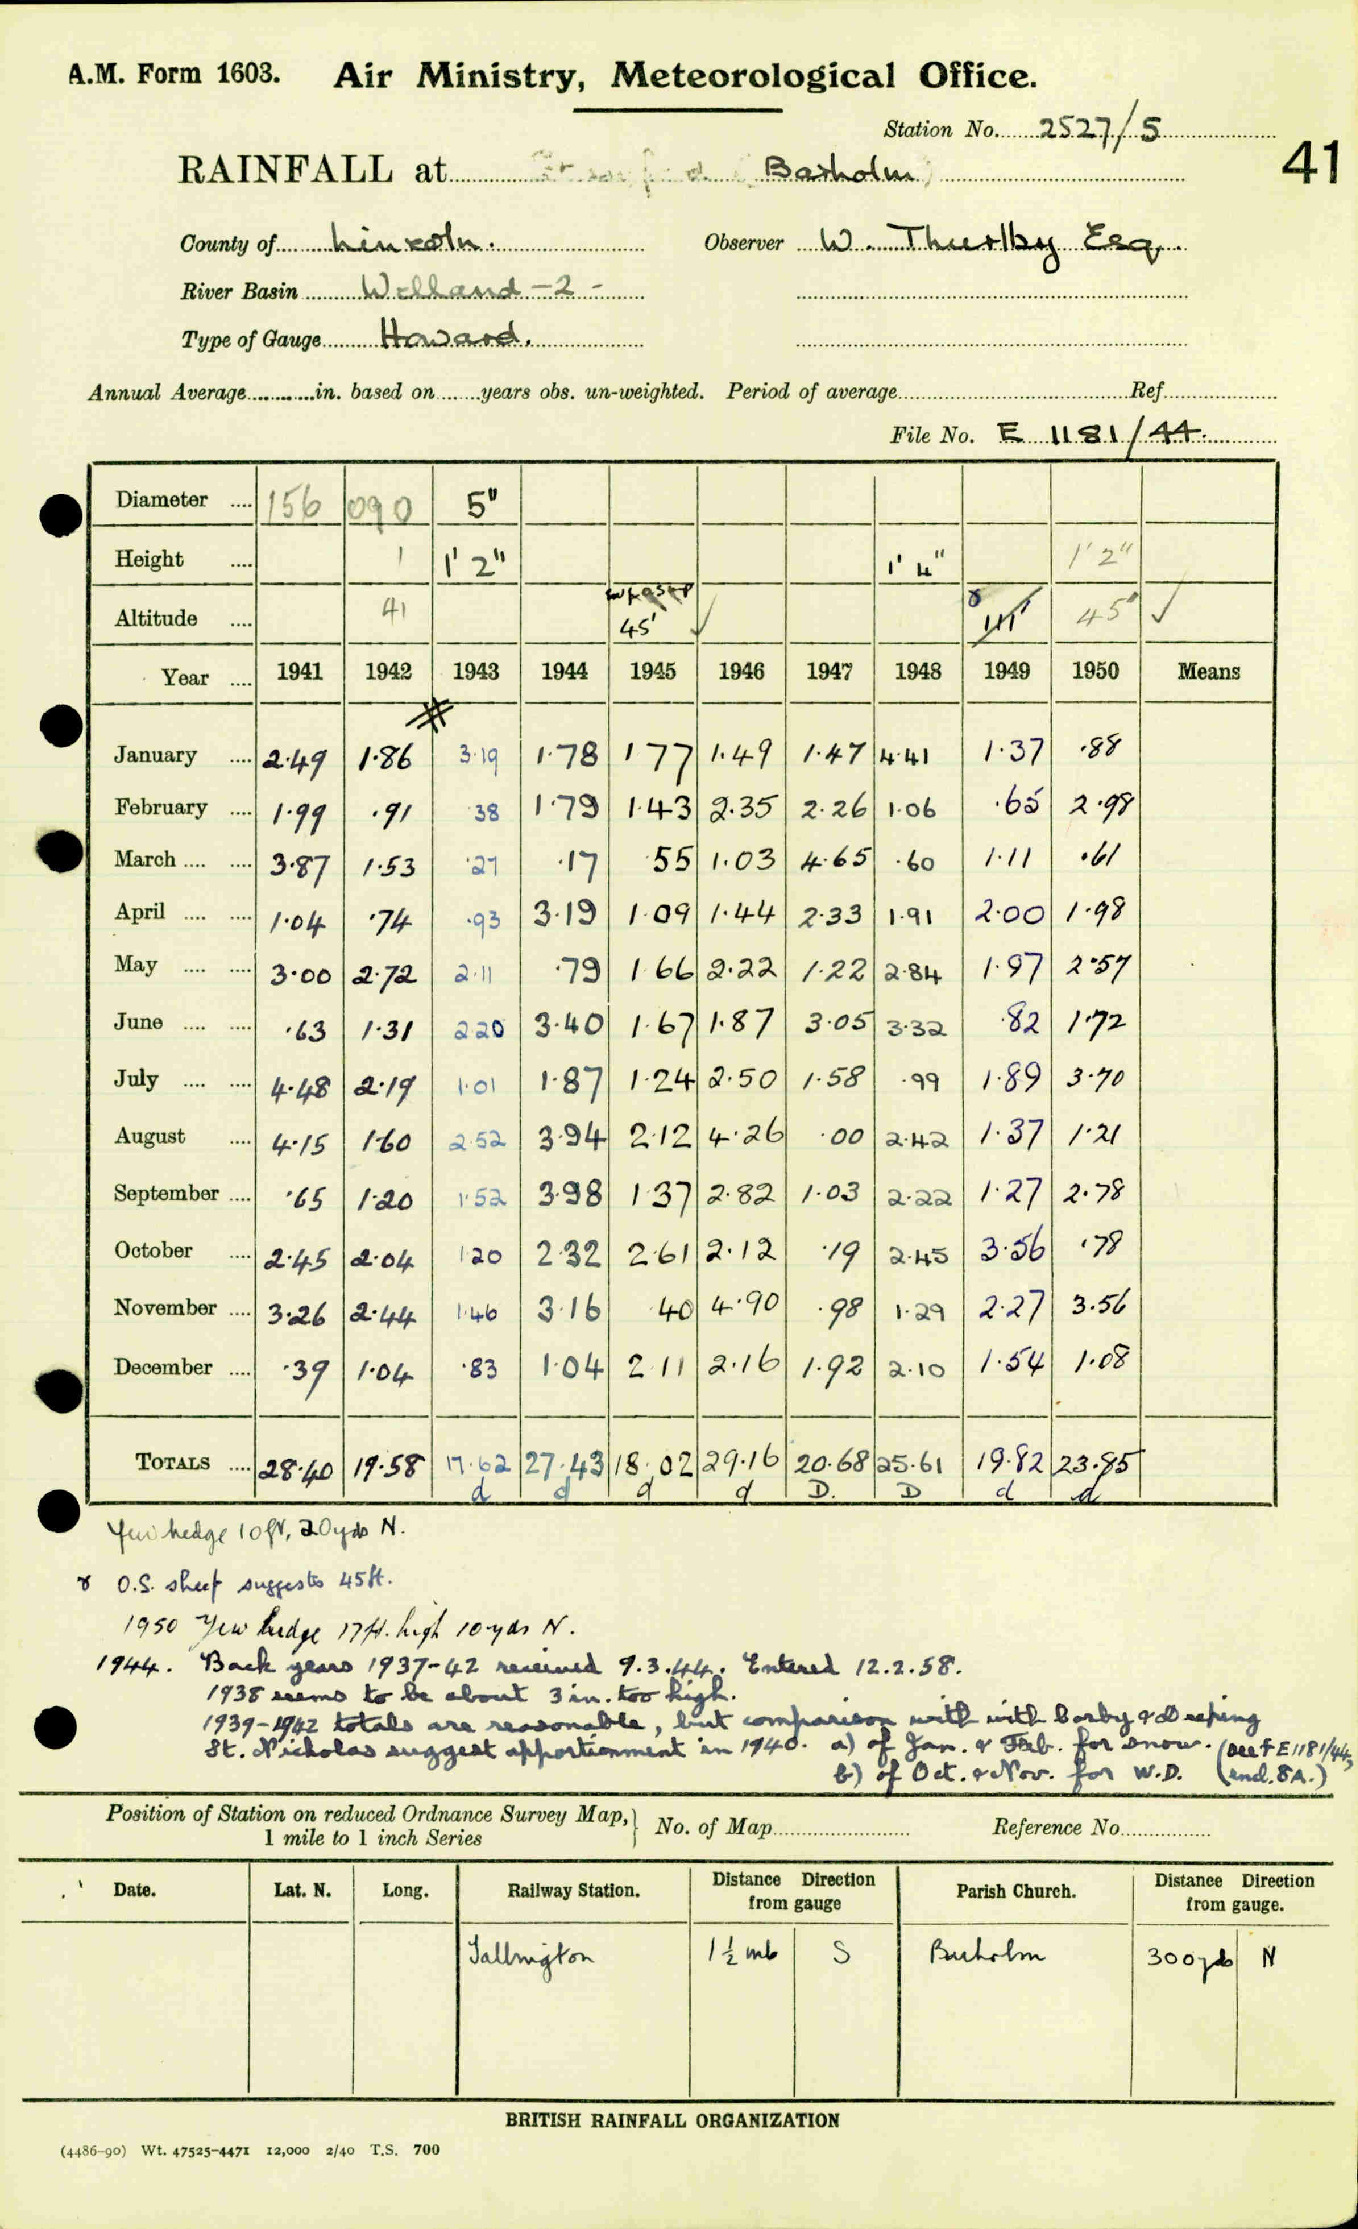 A.M. Form 1603. Air Ministry, Meteorological Office.
Station No. 2527/5
41
RAINFALL at Barholm
County of Lincoln. Observer W. Thurlby Esq.
River Basin Welland -2-
Type of Gauge Howard.
Annual Average in. based on years obs. un-weighted. Period of average Ref.
File No. E 1181/44.
Diameter 156 090 5"
Height 1 1' 2" 1' 4" 1' 2"
Altitude 41 45' ✓ γ 111' 45' ✓
Year 1941 1942 1943 1944 1945 1946 1947 1948 1949 1950 Means
January 2.49 1.86 3.19 1.78 1.77 1.49 1.47 4.41 1.37 .88
February 1.99 .91 .38 1.79 1.43 2.35 2.26 1.06 .65 2.98
March 3.87 1.53 .27 .17 .55 1.03 4.65 .60 1.11 .61
April 1.04 .74 .93 3.19 1.09 1.44 2.33 1.91 2.00 1.98
May 3.00 2.72 2.11 .79 1.66 2.22 1.22 2.84 1.97 2.57
June .63 1.31 2.20 3.40 1.67 1.87 3.05 3.32 .82 1.72
July 4.48 2.19 1.01 1.87 1.24 2.50 1.58 .99 1.89 3.70
August 4.15 1.60 2.52 3.94 2.12 4.26 .00 2.42 1.37 1.21
September .65 1.20 1.52 3.98 1.37 2.82 1.03 2.22 1.27 2.78
October 2.45 2.04 1.20 2.32 2.61 2.12 .19 2.45 3.56 .78
November 3.26 2.44 1.46 3.16 .40 4.90 .98 1.29 2.27 3.56
December .39 1.04 .83 1.04 2.11 2.16 1.92 2.10 1.54 1.08
TOTALS 28.40 19.58 17.62 27.43 18.02 29.16 20.68 25.61 19.82 23.85
d d d d D. D d d
Yew hedge 10ft, 20yds N.
γ O.S. sheet suggests 45ft.
1950 Yew hedge 17ft. high 10 yds N.
1944. Back years 1937-42 received 9.3.44. Entered 12.2.58.
1938 seems to be about 3 in. too high.
1939-1942 totals are reasonable, but comparison with with Barby & Deeping
St. Nicholas suggest apportionment in 1940. a) of Jan. & Feb. for snow. (See F E1181/44,
b) of Oct. & Nov. for W.D. (encl. 8A.)
Position of Station on reduced Ordnance Survey Map, 1 mile to 1 inch Series No. of Map Reference No.
Date. Lat. N. Long. Railway Station. Distance Direction from gauge Parish Church. Distance Direction from gauge.
Tallington 1½ mls S Barholm 300 yds N
BRITISH RAINFALL ORGANIZATION
(4486-90) Wt. 47525-4471 12,000 2/40 T.S. 700